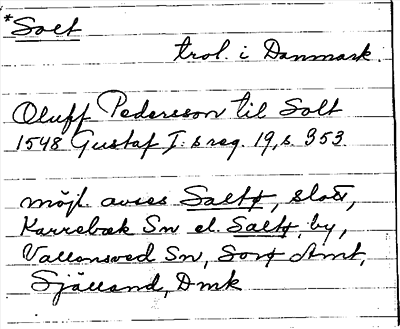 *Salt
trol. i Danmark.
Oluff Pedersson til Solt
1548 Gustaf I:s reg. 19, s. 353.
möjl. avses Saltø, slott,
Karrebæk Sn el. Saltø by,
Vallensved Sn, Sorø Amt,
Själland, Dmk